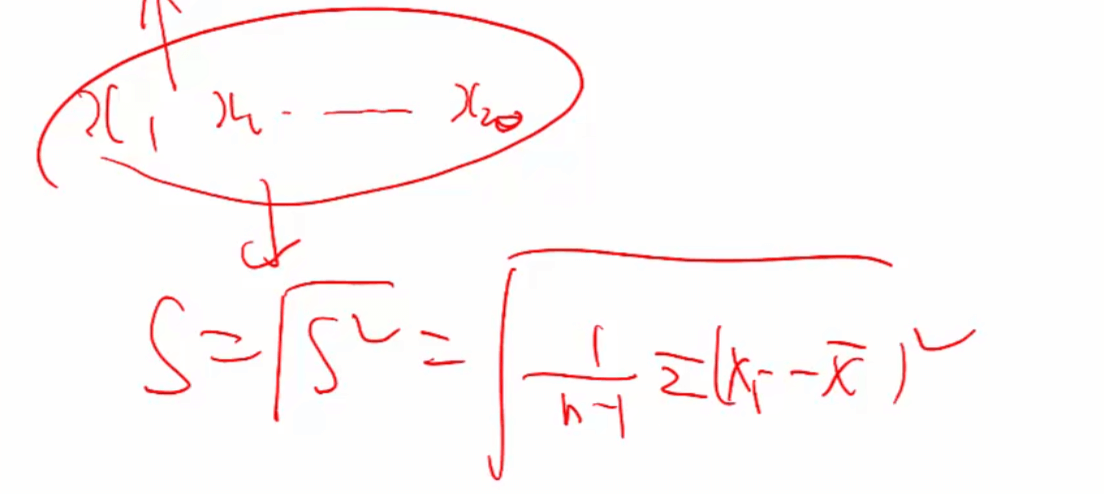 x₁ x₂ · — x₂₀
S = √S² = √(1/(n-1) Σ(xᵢ - x̄)²)